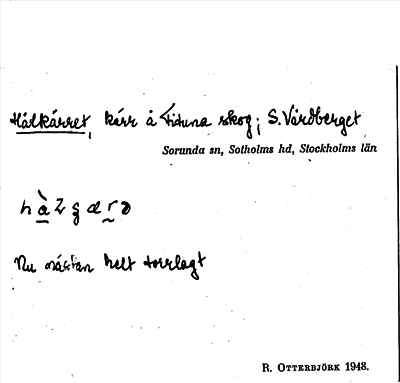 Hålkärret, kärr å Fituna skog; S. Vårdberget
Sorunda sn, Sotholms hd, Stockholms län
Nu nästan helt torrlagt
R. OTTERBJÖRK 1948.